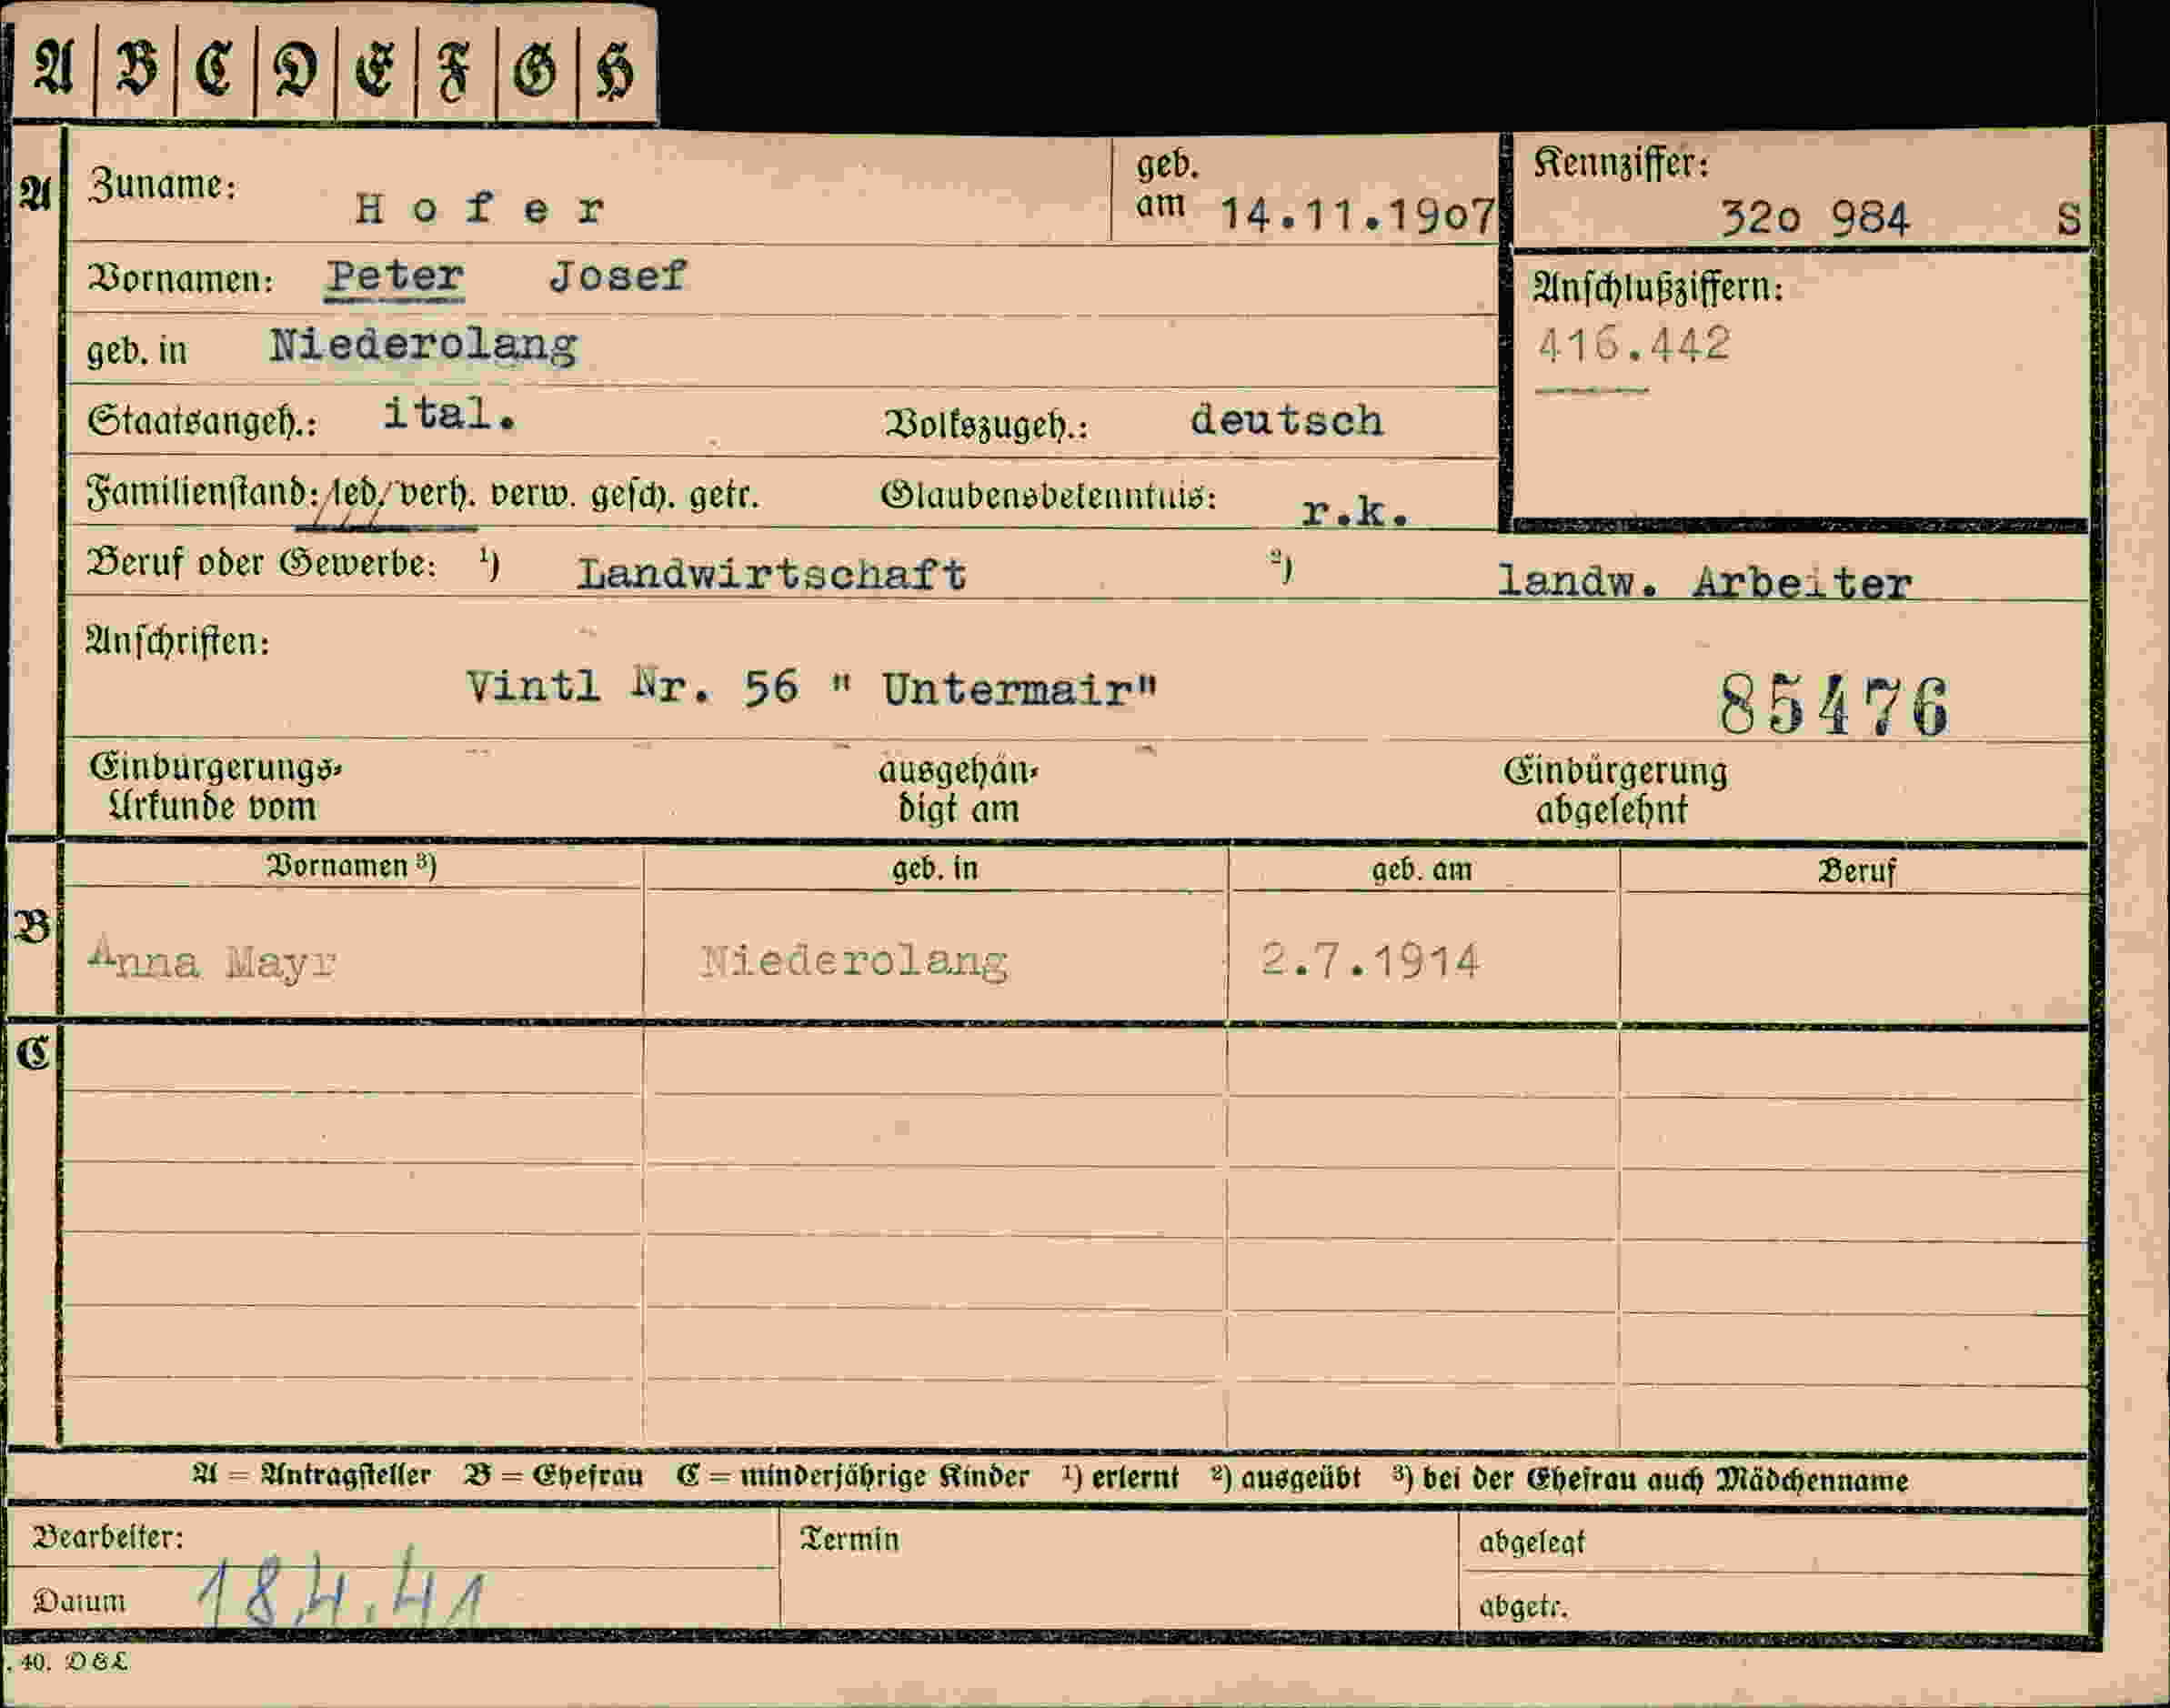 A B C D E F G H
A Zuname: Hofer geb. am 14.11.1907 Kennziffer: 32o 984 S
Vornamen: Peter Josef Anschlußziffern:
geb. in Niederolang 416.442
Staatsangeh.: ital. Volkszugeh.: deutsch
Familienstand: led. verh. verw. gesch. getr. Glaubensbekenntnis: r.k.
Beruf oder Gewerbe: 1) Landwirtschaft 2) landw. Arbeiter
Anschriften:
Vintl Nr. 56 " Untermair" 85476
Einbürgerungs- ausgehän- Einbürgerung
Urkunde vom digt am abgelehnt
Vornamen 3) geb. in geb. am Beruf
B Anna Mayr Niederolang 2.7.1914
C
A = Antragsteller B = Ehefrau C = minderjährige Kinder 1) erlernt 2) ausgeübt 3) bei der Ehefrau auch Mädchenname
Bearbeiter: Termin abgelegt
Datum 18.4.41 abgetr.
. 40. D & L